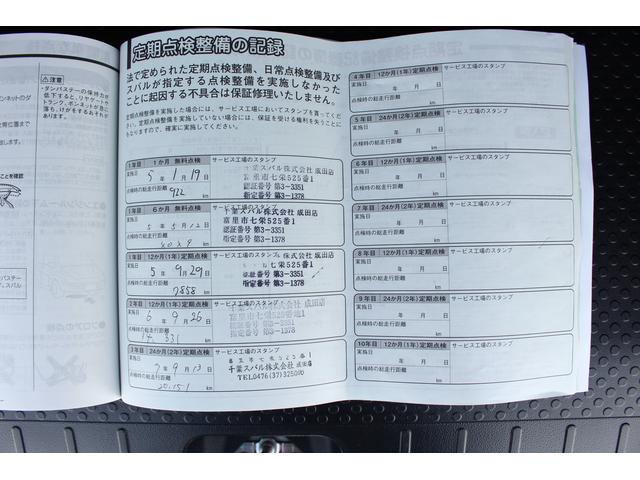 注意
定期点検整備の記録
法で定められた定期点検整備、日常点検整備及び
スバルが指定する点検整備を実施しなかった
ことに起因する不具合は保証修理いたしません。
定期点検整備を実施した場合には、サービス工場においてスタンプを貰ってください。
定期点検整備を実施していない場合には、保証を受ける権利を失うことに
なりますので、確実に実施してください。
1年目 1か月 無料点検 サービス工場のスタンプ
実施日 5年 1月 19日
点検時の総走行距離 922 km
千葉スバル株式会社 成田店
富里市七栄525番1
認証番号 第3-3351
指定番号 第3-1378
1年目 6か月 無料点検 サービス工場のスタンプ
実施日 5年 5月 12日
点検時の総走行距離 km
千葉スバル株式会社 成田店
富里市七栄525番1
認証番号 第3-3351
指定番号 第3-1378
1年目 12か月(1年)定期点検 サービス工場のスタンプ
実施日 5年 9月 29日
点検時の総走行距離 7858 km
株式会社 成田店
七栄525番1
認証番号 第3-3351
指定番号 第3-1378
2年目 12か月(1年)定期点検 サービス工場のスタンプ
実施日 6年 9月 26日
点検時の総走行距離 14,331 km
千葉スバル株式会社 成田店
富里市七栄525番1
認証番号 第3-3351
指定番号 第3-1378
3年目 24か月(2年)定期点検 サービス工場のスタンプ
実施日 7年 9月 13日
点検時の総走行距離 20,151 km
富里市七栄525番1
千葉スバル株式会社 成田店
TEL0476(37)3250
4年目 12か月(1年)定期点検 サービス工場のスタンプ
実施日 年 月 日
点検時の総走行距離 km
5年目 24か月(2年)定期点検 サービス工場のスタンプ
実施日 年 月 日
点検時の総走行距離 km
6年目 12か月(1年)定期点検 サービス工場のスタンプ
実施日 年 月 日
点検時の総走行距離 km
7年目 24か月(2年)定期点検 サービス工場のスタンプ
実施日 年 月 日
点検時の総走行距離 km
8年目 12か月(1年)定期点検 サービス工場のスタンプ
実施日 年 月 日
点検時の総走行距離 km
9年目 24か月(2年)定期点検 サービス工場のスタンプ
実施日 年 月 日
点検時の総走行距離 km
10年目 12か月(1年)定期点検 サービス工場のスタンプ
実施日 年 月 日
点検時の総走行距離 km